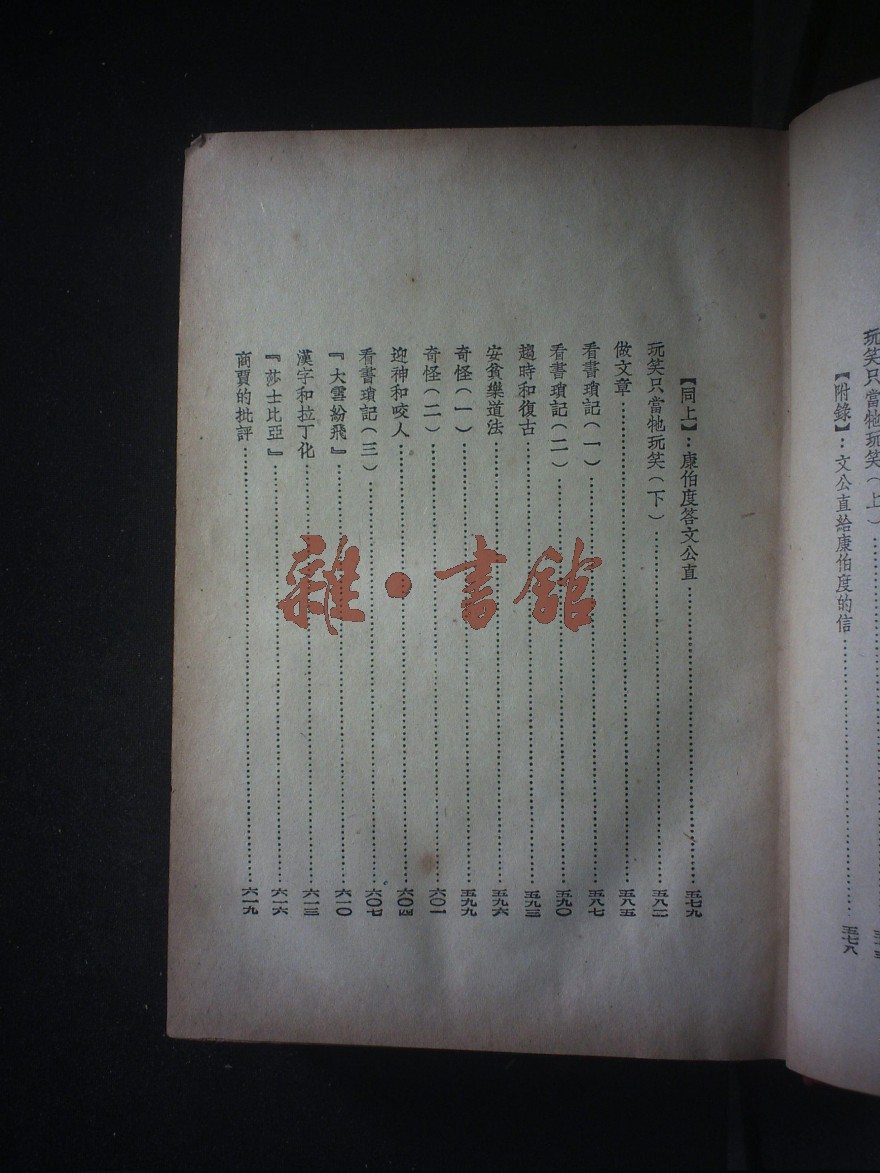 玩笑只當牠玩笑（上）
【附錄】：文公直給康伯度的信 五七八
【同上】：康伯度答文公直 五七九
玩笑只當牠玩笑（下） 五八二
做文章 五八五
看書瑣記（一） 五八七
看書瑣記（二） 五九〇
趨時和復古 五九三
安貧樂道法 五九六
奇怪（一） 五九九
奇怪（二） 六〇一
迎神和咬人 六〇四
看書瑣記（三） 六〇七
『大雪紛飛』 六一〇
漢字和拉丁化 六一三
『莎士比亞』 六一六
商賈的批評 六一九
雜·書館